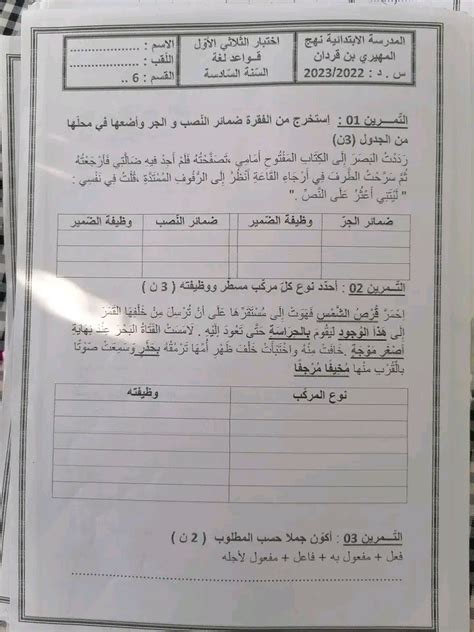 المدرسة الابتدائية نهج
المهيري بن قردان
س . د : 2023/2022
اختبار الثلاثي الأول
قــواعد لغة
السّنة السّادسة
الاسم : ................
اللّقب : ................
القسم : 6 ..
التّـــمرين 01 : إستخرج من الفقرة ضمائر النّصب و الجر وأضعها في محلّها
من الجدول (3ن)
رَدَدْتُ البَصَرَ إِلَى الكِتَابِ المَفْتُوحِ أَمَامِي ،تَصَفَّحْتُهُ فَلَمْ أَجِدْ فِيهِ ضَالَّتِي فَأَرْجَعْتُهُ
ثُمَّ سَرَّحْتُ الطَّرفَ فِي أَرْجَاءِ القَاعَةِ أَنْظُرُ إِلَى الرُّفُوفِ المُمْتَدَّةِ ،قُلْتُ فِي نَفْسِي :
" لَيْتَنِي أَعْثُرُ عَلَى النَّصِّ ".
ضمائر الجرّ وظيفة الضّمير ضمائر النّصب وظيفة الضّمير
التّـــمرين 02 : أحدّد نوع كلّ مركّب مسطّر ووظيفته ( 3 ن )
احْمَرَّ قُرْصُ الشَّمْسِ فَهَوَتْ إِلَى مُسْتَقَرِّهَا عَلَى أَنْ تُرْسِلَ مِنْ خَلْفِهَا القَمَرَ
إِلَى هَذَا الوُجُودِ لِيَقُومَ بِالحِرَاسَةِ حَتَّى تَعُودَ إِلَيْهِ . لَامَسَتْ الفَتَاةُ البَحْرَ عِنْدَ نِهَايَةِ
أَصْغَرِ مَوْجَةٍ .خَافَتْ مِنْهُ وَاخْتَبَأَتْ خَلْفَ ظَهْرِ أُمِّهَا تَرْمُقُهُ بِحَذَرٍ وَسَمِعَتْ صَوْتًا
بِالقُرْبِ مِنْهَا مُخِيفًا مُرْجِفًا
نوع المركّب وظيفته
التّـــمرين 03 : أكوّن جملا حسب المطلوب ( 2 ن )
فعل + مفعول به + فاعل + مفعول لأجله